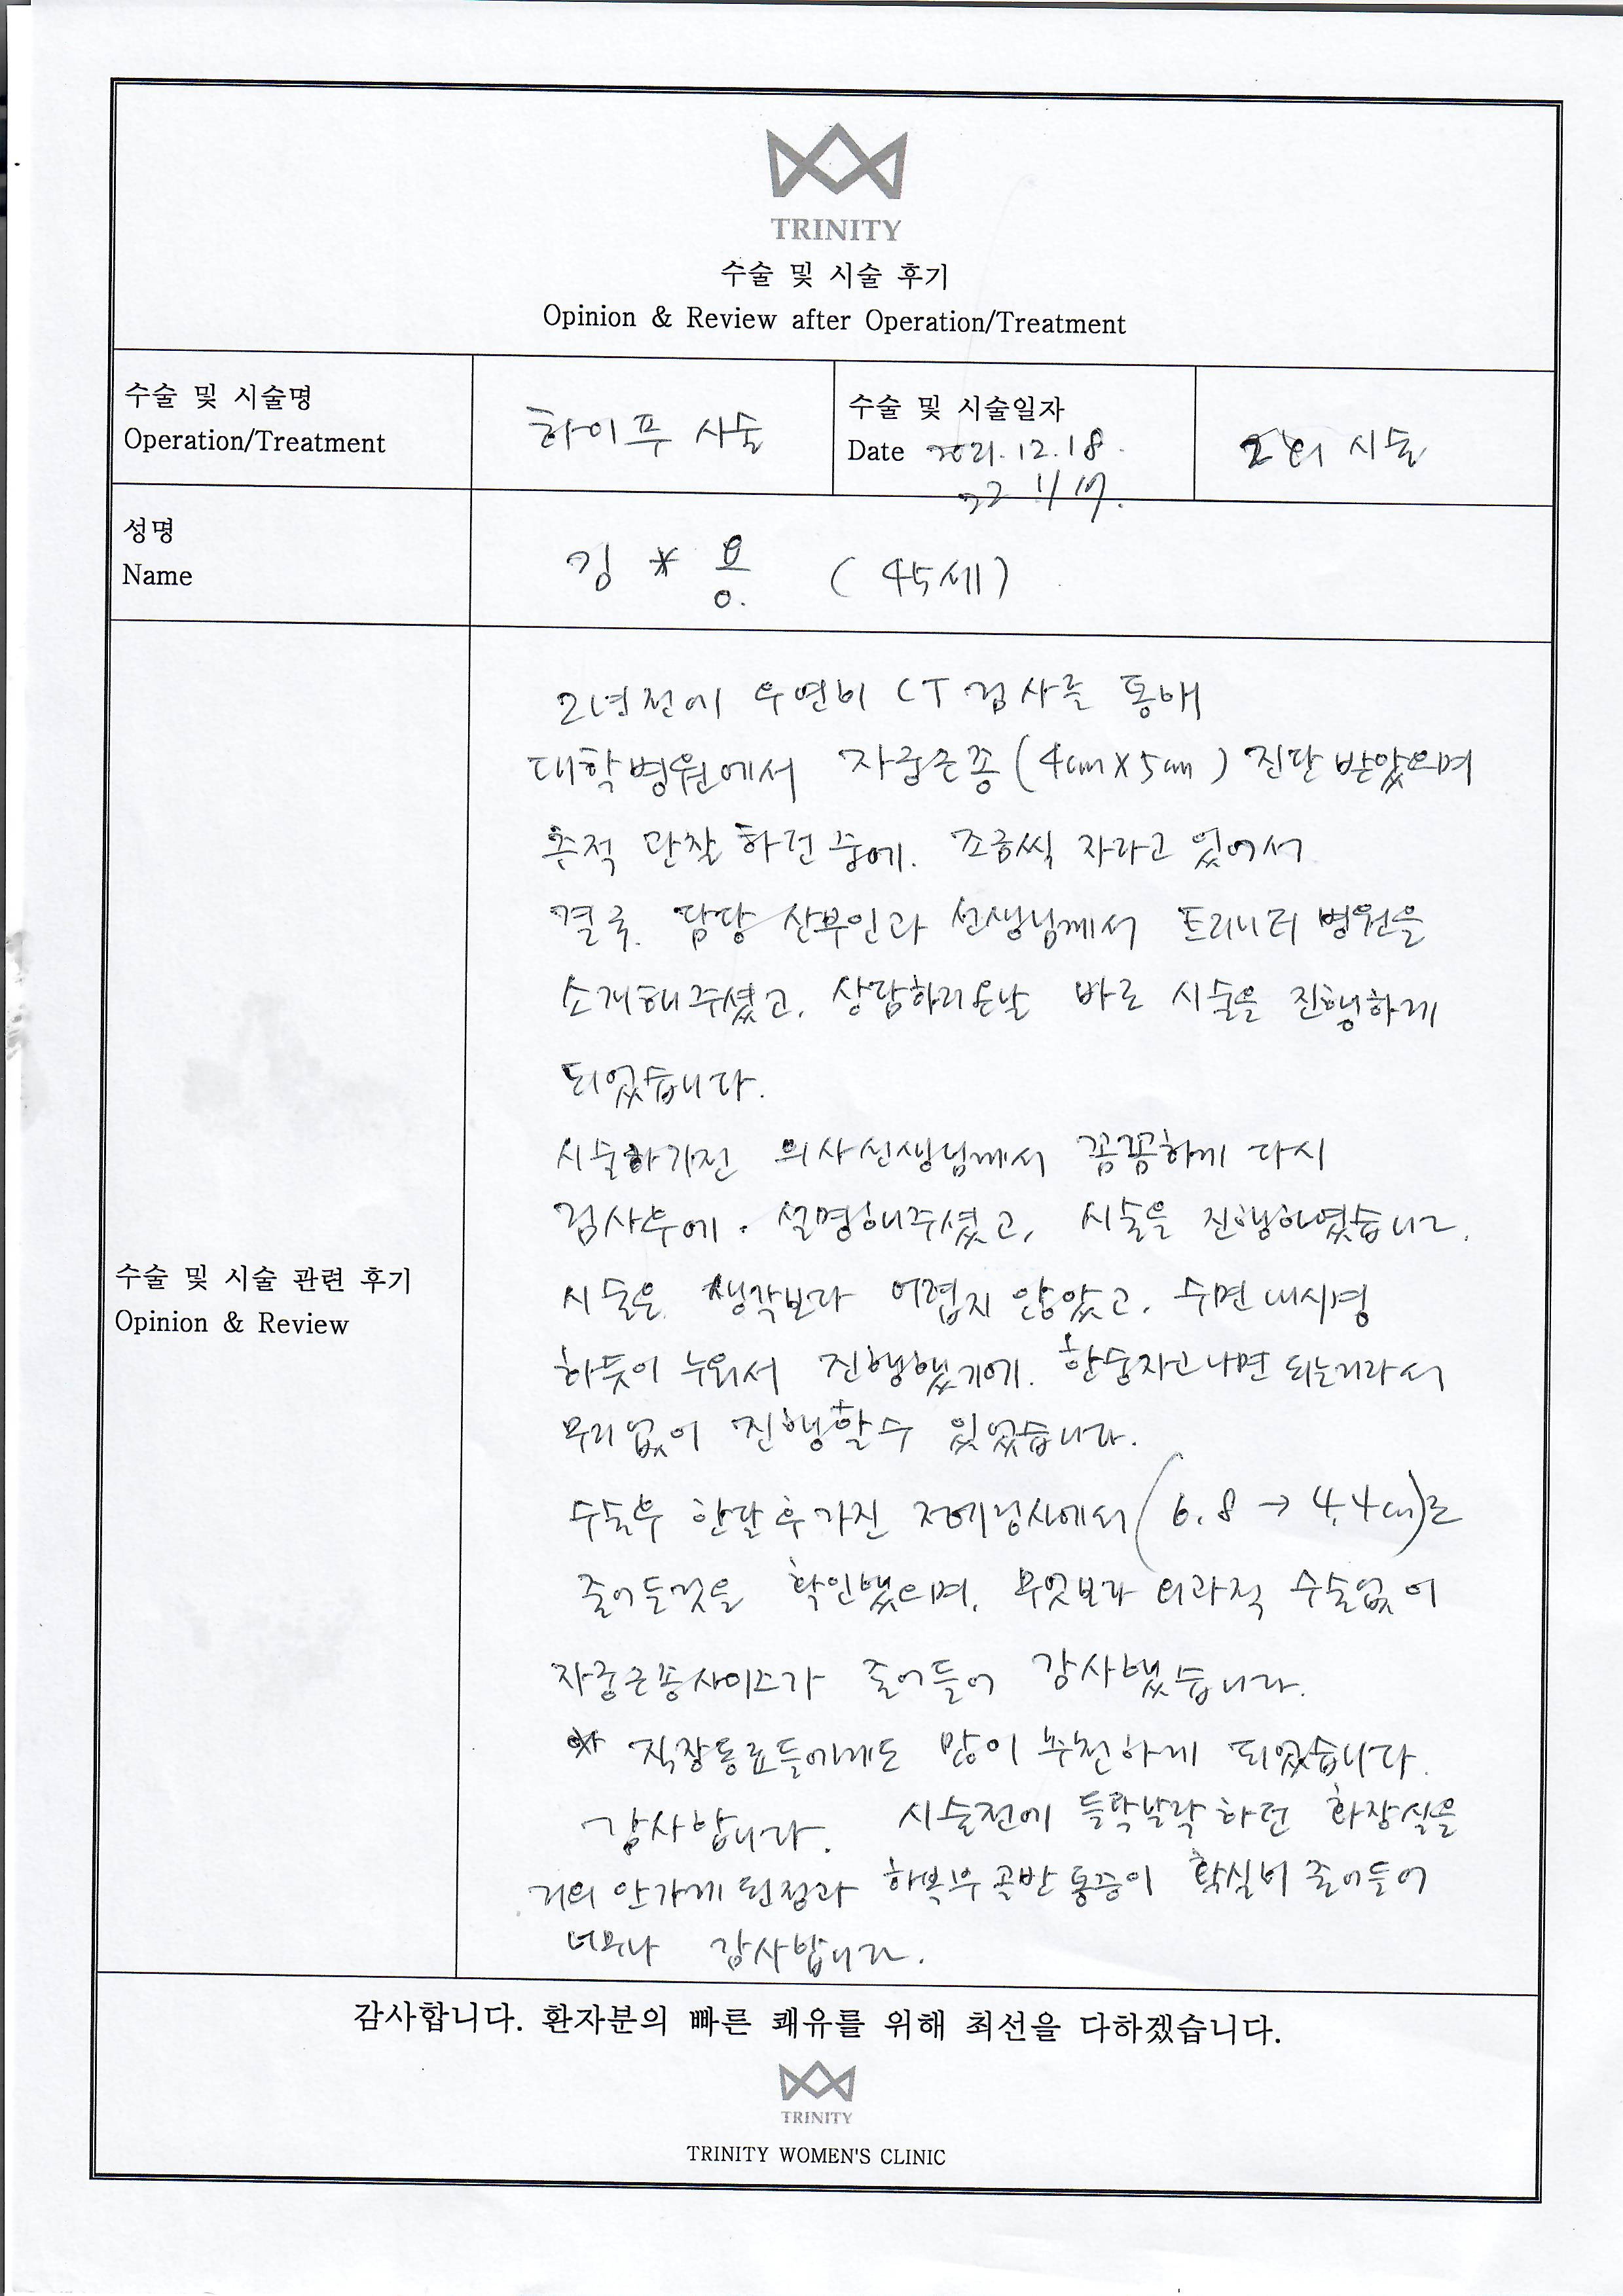 TRINITY
수술 및 시술 후기
Opinion & Review after Operation/Treatment
수술 및 시술명
Operation/Treatment
하이푸 시술
수술 및 시술일자
Date 2021.12.18.
22 1/17.
2회 시술
성명
Name
김 * 용 (45세)
수술 및 시술 관련 후기
Opinion & Review
2년전에 우연히 CT 검사를 통해
대학병원에서 자궁근종 (4cm X 5cm) 진단 받았으며
추적 관찰 하던 중에. 조금씩 자라고 있어서
결국. 담당 산부인과 선생님께서 트리니티 병원을
소개해주셨고, 상담하러온날 바로 시술을 진행하게
되었습니다.
시술하기전 의사선생님께서 꼼꼼하게 다시
검사후에. 설명해주셨고, 시술을 진행하였습니다.
시술은 생각보다 어렵지 않았고, 수면내시경
하듯이 누워서 진행했기에. 한숨자고나면 되는거라서
무리없이 진행할수 있었습니다.
수술후 한달 후 가진 정사에서 (6.8 → 4.4cm)로
줄어든것을 확인했으며, 무엇보다 외과적 수술없이
자궁근종사이즈가 줄어들어 감사했습니다.
직장동료들에게도 많이 추천하게 되었습니다.
감사합니다. 시술전에 들락날락 하던 화장실을
거의 안가게 된점과 하복부 골반통증이 확실히 줄어들어
너무나 감사합니다.
감사합니다. 환자분의 빠른 쾌유를 위해 최선을 다하겠습니다.
TRINITY
TRINITY WOMEN'S CLINIC